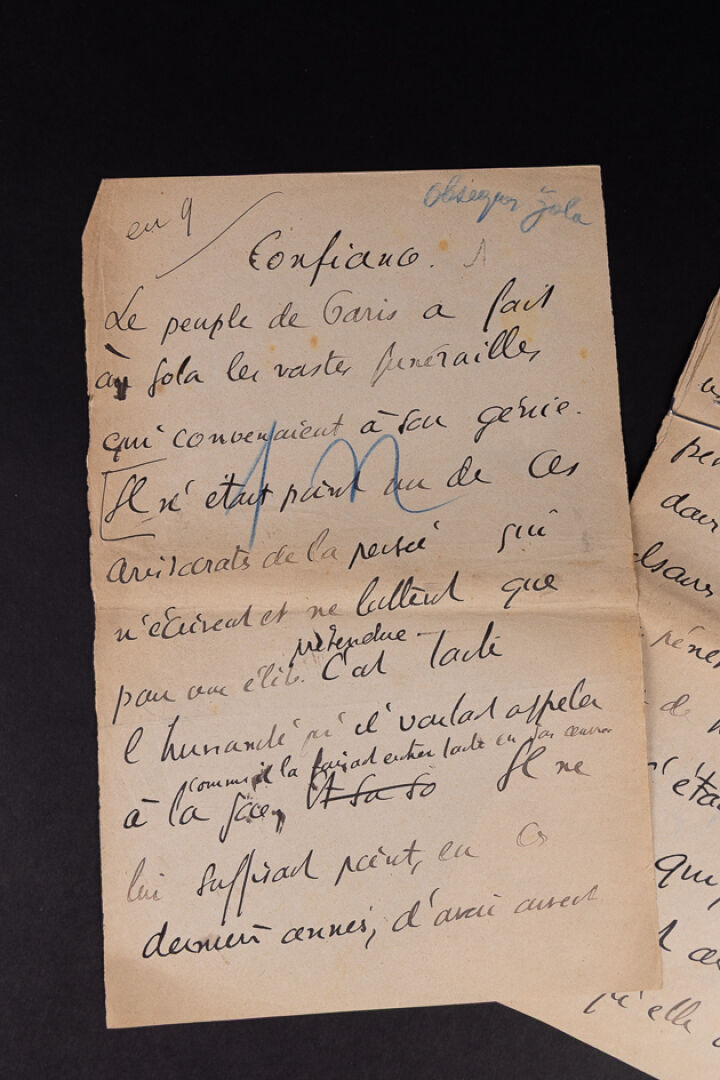 en 9
Obsèques Zola
Confiance.
Le peuple de Paris a fait
à Zola les vastes funérailles
qui convenaient à son génie.
Il n'était point un de ces
aristocrates de la pensée qui
n'écrivent et ne luttent que
prétendue
pour une élite. C'est toute
l'humanité qu'il voulait appeler
comme il la faisait entrer toute en son œuvre
à la joie, Il ne
lui suffisait point, en ces
dernières années, d'avoir ouvert
qu'elle